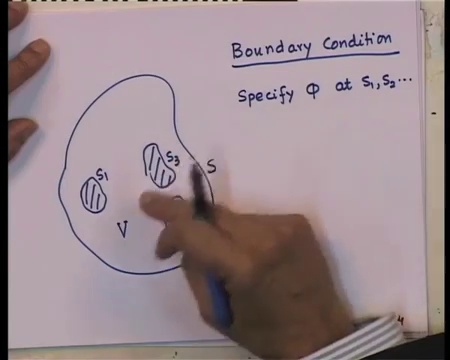 Boundary Condition
Specify Φ at S₁, S₂...
S₃
S
S₁
V